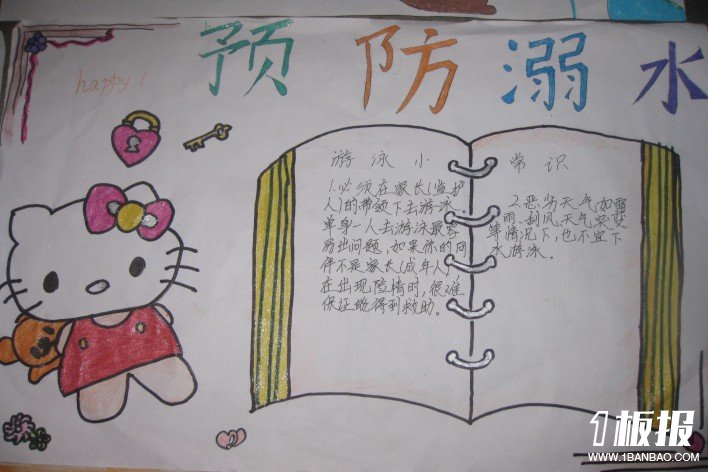 预防溺水
happy!
游泳小常识
1.必须在家长(监护
人)的带领下去游泳。
单身一人去游泳最容
易出问题,如果你的同
伴不是家长(成年人),
在出现险情时,很难
保证能得到救助。
2.恶劣天气如雷
雨、刮风、天气突变
等情况下,也不宜下
水游泳。
1板报
WWW.1BANBAO.COM